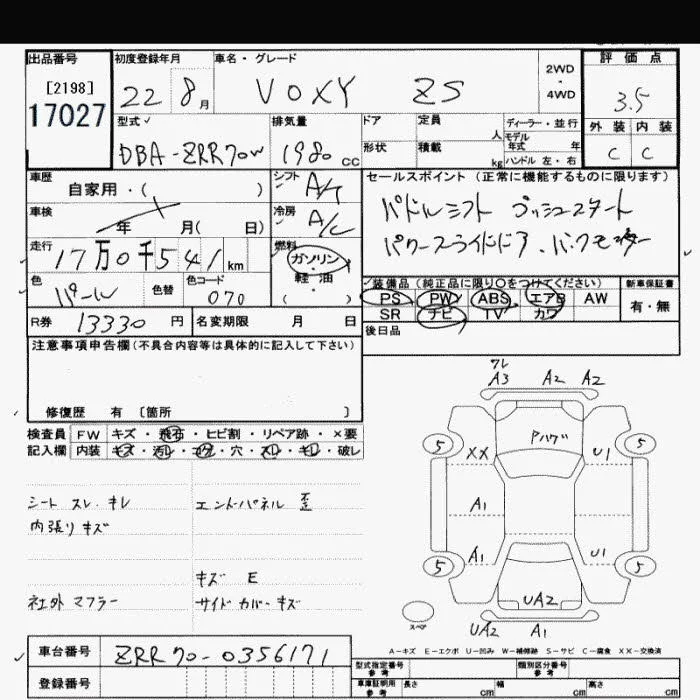 出品番号 初度登録年月 車名・グレード 評価点
[2198] 22 8月 VOXY ZS 2WD・4WD 3.5
17027
型式 排気量 ドア 定員 人 ディーラー・並行 外装 内装
モデル年式 年
DBA-ZRR70W 1980 cc 形状 積載 kg ハンドル 左・右 C C
車歴 シフト セールスポイント (正常に機能するものに限ります)
自家用・( ) A/T パドルシフト プッシュスタート
車検 冷房
年 月( 日) A/C パワースライドドア、バックモニター
走行 燃料
17万0千541km ガソリン・軽油 ( )
装備品(純正品に限り○をつけてください) 新車保証書
色 色替 色コード
パール 070 PS PW ABS エアB AW 有・無
SR ナビ TV カワ
R券 13330円 名変期限 月 日 後日品
注意事項申告欄(不具合内容等は具体的に記入して下さい)
修復歴 有 [箇所 ]
検査員 FW キズ・飛石・ヒビ割・リペア跡・×要
記入欄 内装 キズ・汚レ・コゲ・穴・スレ・キレ・破レ
シート スレ・キレ エンドパネル 歪
内張り キズ
キズ E
社外 マフラー サイドカバー キズ
ワレ
A3 A2 A2
Pハゲ
5 5
XX U1
A1
A1 U1
5 5
UA2
スペア UA2 A1
A-キズ E-エクボ U-凹み W-補修跡 S-サビ C-腐食 XX-交換済
車台番号 ZRR70-0356171
型式指定番号 参考 類別区分番号 参考
登録番号 車庫証明用 参考 長さ cm 幅 cm 高さ cm